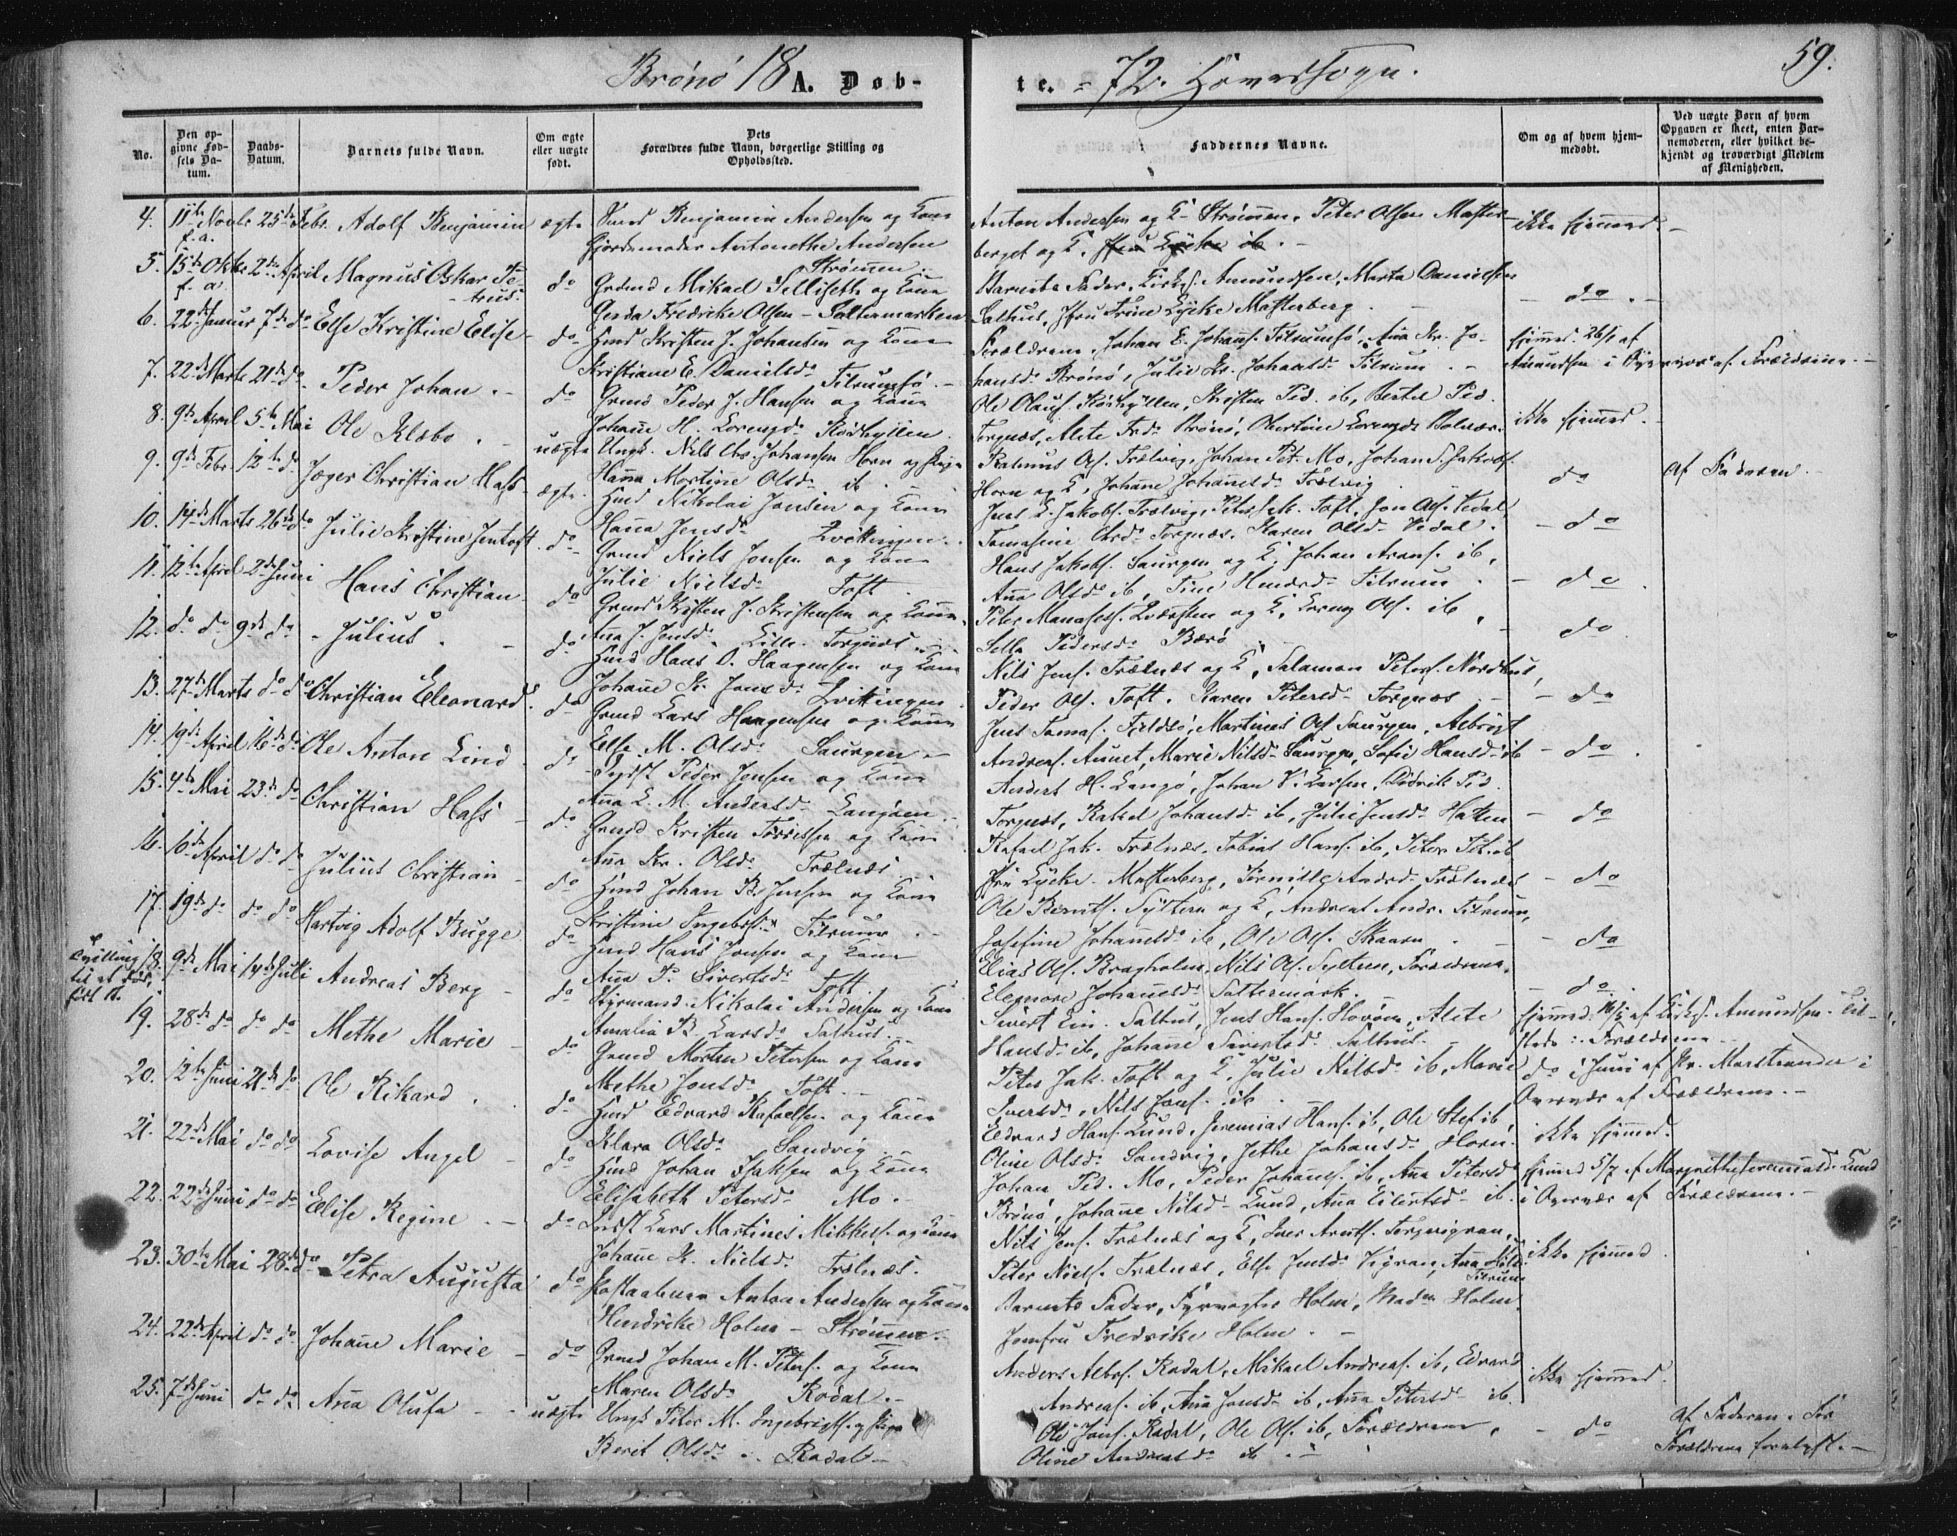 Brønø 18 A. Døb-
te. - 72. Hovedsogn.
59.
No.
Den opgivne Fødsels Datum.
Daabs-Datum.
Barnets fulde Navn.
Om ægte eller uægte født.
Dets Forældres fulde Navn, borgerlige Stilling og Opholdssted.
Faddernes Navne.
Om og af hvem hjemmedøbt.
Ved uægte Børn af hvem Opgaven er skeet, enten Barnemoderen, eller hvilket bekjendt og troværdigt Medlem af Menigheden.
4. 11te Novbr 25de Febr. Adolf Benjamin ægte Benjamin Andersen og Kone
f. a. Gjordemoder Antonethe Andersen
Strømmen.
Anton Andersen og K. Strømmen, Peter Olsen Master-
berget og K.
ikke hjemmed. -
5. 15de Oktbr 2den April Magnus Oskar Pe-
trus. do Grdmd Mikael Selliseth og Kone
f. a. Gerda Fredrike Olsen - Saltermarken
Barnets Fader, Kirks. Amundsen, Marta Danielsen
Salhus, Jfru Trine Lycke Masterberg.
- do -
6. 22de Januar 7de do Else Kristine Elise - do Hmd Kristen J. Johansen og Kone
Kristiane E. Danielsd. Tilrumsø. -
Forældrene, Johan E. Johans. Tilrumsø, Ana Kr. Jo-
hansd. Brønø, Julie Kr. Johansd. Tilrum. -
hjemmed. 26/1 af
Amundsen i Overvær af Forældrene. -
7. 22de Marts 21de do Peder Johan. - do Grmd Peder J. Hansen og Kone
Johanne H. Lorensd. Rødhyllen.
Ole Olaus. Rødhyllen, Kristen Ped. ib, Bertel Ped.
ikke hjemmed.
8. 9de April 5te Mai Ole Klebo. - uægte Ungk. Nils Chr. Johansen Horn og Pige
Hanna Martine Olsd. ib.
Horn og K., Johanne Johannesd. Trælvig
do
Af Faderen. -
9. 9de Febr. 12te do Jæger Christian Hass - ægte. Hmd Nikolai Jensen og Kone
Hanna Jensd.
Jens K. Jakobs. Trælvig, Peter Jak. Toft, Jon Ols. Vedal,
Tomasine Chrd. Torgnæs, Karen Olsd. Vedal.
- do
10. 14de Marts 26de do Julie Kristine Jentoft. do Grmd Niels Jensen og Kone
Julie Nielsd. Toft.
Hans Jakobs. Saurgen og K., Johan Arons. ib,
Ana Olsd. ib, Tine Hendrd. Tilrum.
- do
11. 12te April 2den Juni Hans Christian - do Grmd Kristen J. Kristensen og Kone
Ana J. Jensd. Lille Torgnæs.
Peter Manasses. og K., Lorens Ols. ib
Pedersd. Bærø
- do
12. do do 9de do Julius. - do Hmd Hans O. Haagensen og Kone
Johanne K. Jensd.
Nils Jens. Trælnæs og K., Salamon Peters. Nordhus,
Peder Ols. Toft. Karen Petersd. Torgnæs.
- do
13. 27de Marts do do Christian Eleonard. do Grmd Lars Haagensen og Kone
Else M. Olsd. Saurgen. -
Jens Tomas. Fjeldsø, Martinus Ols. Saurgen, Albrigt
Andreas. Aunet, Marie Nilsd. Saurgen, Sofie Hansd. ib
- do
14. 19de April 16de do Ole Anton Lind do Indst Peder Jensen og Kone
Ana L. M. Andersd. Langøen. -
Anders H. Langø, Johan V. Larsen, Didrik Ped.
Torgnæs, Rakel Johansd. ib, Julie Jensd. Hatten
- do
15. 4de Mai 23de do Christian Hass - do Grmd Kristen Torrissen og Kone
Ana Kr. Olsd. Trælnæs
Rafael Jak. Trælnæs, Tobias Hans. ib, Peter Pet. ib
Jfru Lycke - Masterberg, Pernille Andrd. Trælnæs
- do
16. 10de April do do Julius Christian - do Hmd Johan B. Jensen og Kone
Kristine Ingebrd. Tilrum. -
Ole Bernts. Sylten og K., Andreas Andr. Tilrum,
Josefine Johannesd. ib, Ole Ols. Skaaren
- do
17. 19de do do do Hartvig Adolf Bugge do Hmd Hans Jensen og Kone
Ana P. Sivertsd. Toft
Elias Ols. Bragholm, Nils Ols. Sylten, Forældrene,
Eleonore Johannesd. Saltermark.
- do
Tvilling til et dødfødt B.
18. 9de Mai 14de Juli Andreas Berg - do Styrmand Nikolai Andersen og Kone
Amalia B. Larsd. Salhus.
Sivert Ein. Salhus, Jens Hans. Havøen, Alete
Hansd. ib, Johanne Sivertsd. Salhus. -
hjemmed. 16/5 af Kirks. Amundsen. Til-
stede: Forældrene -
19. 28de do do do Methe Marie - do Grmd Morten Petersen og Kone
Methe Jensd. Toft. -
Peter Jak. Toft og K., Julie Nilsd. ib, Marie
Iversd., Nils Jens. ib.
do i Juni af Pr. Marstrander i
Overvær af Forældrene. -
20. 12te Juni 21de do Ole Rikard. do Hmd Edvard Rafaelsen og Kone
Klara Olsd. Sandvig
Edvard Hans. Lund, Jeremias Hans. ib, Ole Stef. ib,
Oline Olsd. Sandvig, Jethe Johansd. Horn.
ikke hjemmed.
21. 22de Mai do do Lovise Angel - do Hmd Johan Isaksen og Kone
Elisabeth Petersd. Mo. -
Johan Ped. Mo, Peder Johans. ib, Ana Petersd.
Brønø, Johanne Nilsd. Lund, Ana Eilertsd. ib.
hjemmed 5/7 af Margrethe Jeremiasd. Lund
i Overvær af Forældrene. -
22. 22de Juni do do Elise Regine. - do Indst Lars Martines Mikkels. og Kone
Johanne K. Nielsd. Trælnæs.
Nils Jens. Trælnæs og K., Iver Arnts. Torgvigran,
Peter Niels. Trælnæs, Else Jensd. Vigran, Ana Nilsd.
Tilrum
ikke hjemmed.
23. 30te Mai 28de do Petra Augusta do Postaabner Anton Andersen og Kone
Hendrike Holm - Strømmen. -
Barnets Fader, Fyrvogter Holm, Madm Holm,
Jomfru Fredrike Holm. -
24. 22de April do do Johanne Marie - do Grmd Johan M. Peters. og Kone
Maren Olsd. Rodal. -
Anders Albs. Rodal, Mikael Andreas. ib, Edvard
Andreas. ib, Ana Jensd. ib, Ana Petersd. ib.
ikke hjemmed.
25. 7de Juni do do Ana Olufa - - uægte Ungk Peter M. Ingebrigts. og Pige
Berit Olsd. - Rodal -
Ole Jens. Rodal, Ole Ols. ib, Forældrene,
Oline Andreasd. ib. -
- do
Af Faderen. For
Forældrene forelyst. -